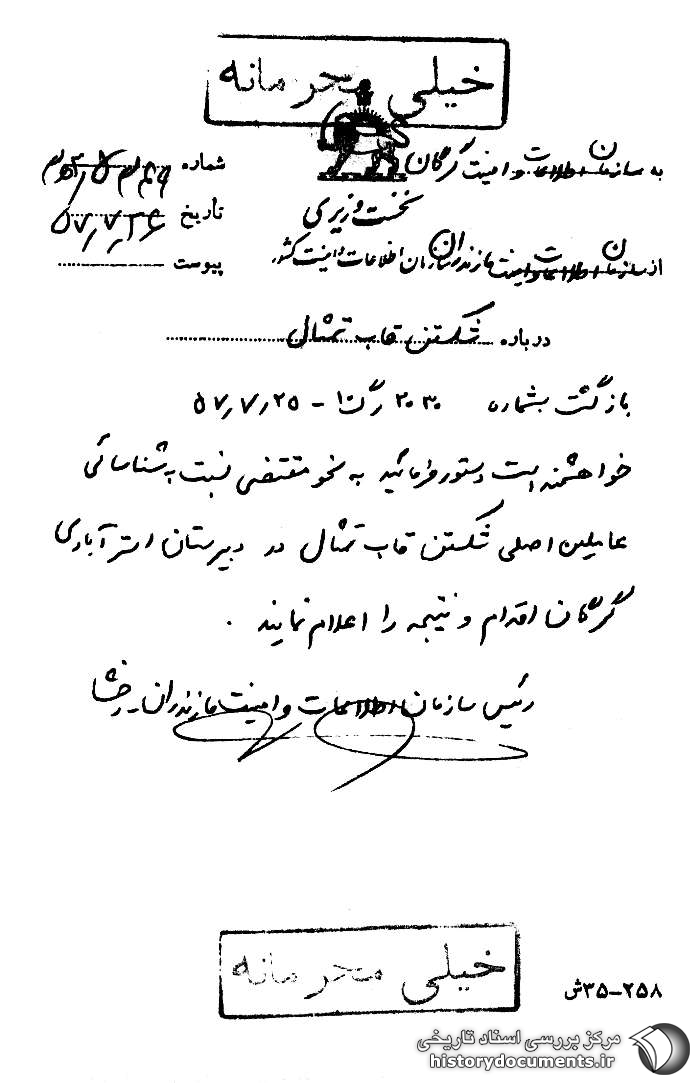 خیلی محرمانه
به سازمان اطلاعات و امنیت گرگان
شماره
نخست وزیری
تاریخ ۵۷٫۷٫۲۶
از سازمان اطلاعات و امنیت مازندران سازمان اطلاعات و امنیت کشور
پیوست
درباره شکستن قاب تمثال
بازگشت بشماره ۲۰۳۰ / گ ۱۰ – ۵۷٫۷٫۲۵
خواهشمند است دستور فرمائید به نحو مقتضی نسبت به شناسائی
عاملین اصلی شکستن قاب تمثال در دبیرستان استرآبادی
گرگان اقدام و نتیجه را اعلام نمایند .
رئیس سازمان اطلاعات و امنیت مازندران ـ رخشا
خیلی محرمانه
۲۵۸-۳۵ش
مرکز بررسی اسناد تاریخی
historydocuments.ir